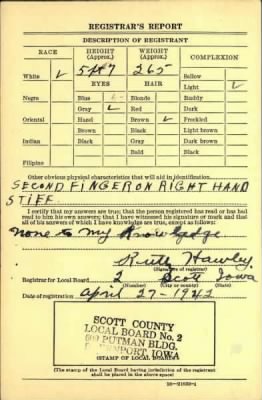 REGISTRAR'S REPORT
DESCRIPTION OF REGISTRANT
RACE HEIGHT (Approx.) WEIGHT (Approx.) COMPLEXION
White ✓ 5 ft 7 265 Sallow
EYES HAIR Light ✓
Negro Blue Blonde Ruddy
Gray ✓ Red Dark
Oriental Hazel Brown ✓ Freckled
Brown Black Light brown
Indian Black Gray Dark brown
Bald Black
Filipino
Other obvious physical characteristics that will aid in identification
SECOND FINGER ON RIGHT HAND
STIFF
I certify that my answers are true; that the person registered has read or has had
read to him his own answers; that I have witnessed his signature or mark and that
all of his answers of which I have knowledge are true, except as follows:
none to my knowledge
Ruth Hawley
Registrar for Local Board 2 Scott Iowa
(Number) (City or county) (State)
Date of registration April 27-1942
SCOTT COUNTY
LOCAL BOARD No. 2
PUTMAN BLDG.
DAVENPORT, IOWA
(STAMP OF LOCAL BOARD)
(The stamp of the Local Board having jurisdiction of the registrant
shall be placed in the above space)